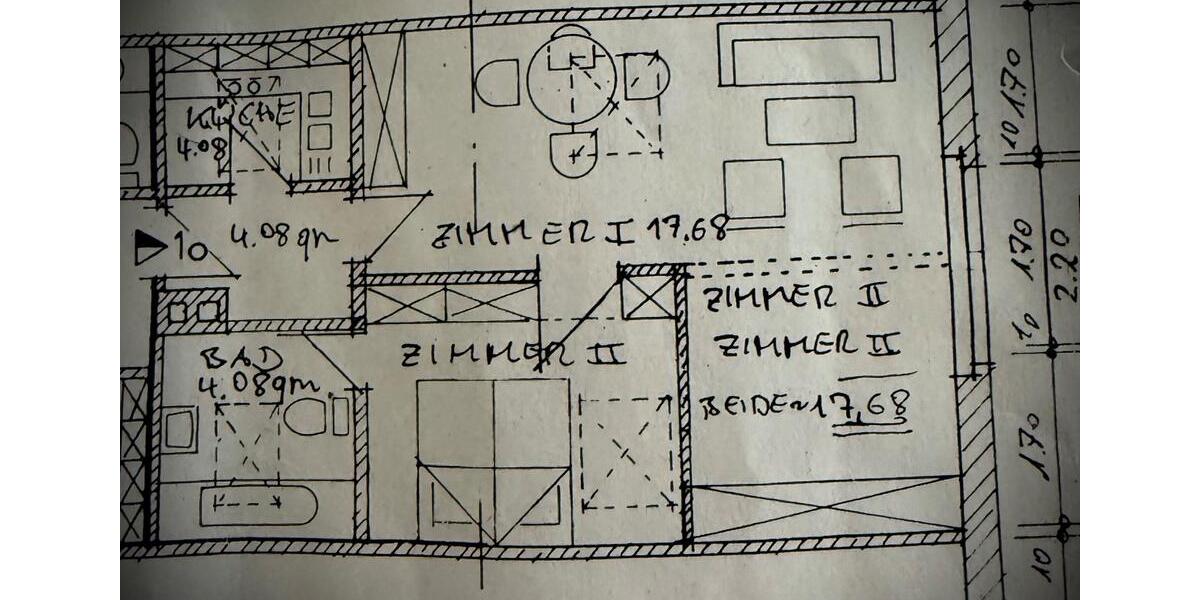 KÜCHE
4.08
10
4.08 qm
ZIMMER I 17.68
ZIMMER II
ZIMMER II
BEIDE ~ 17,68
ZIMMER II
BAD
4.08 qm
1.70
10
1.70
2.20
10
1.70
10